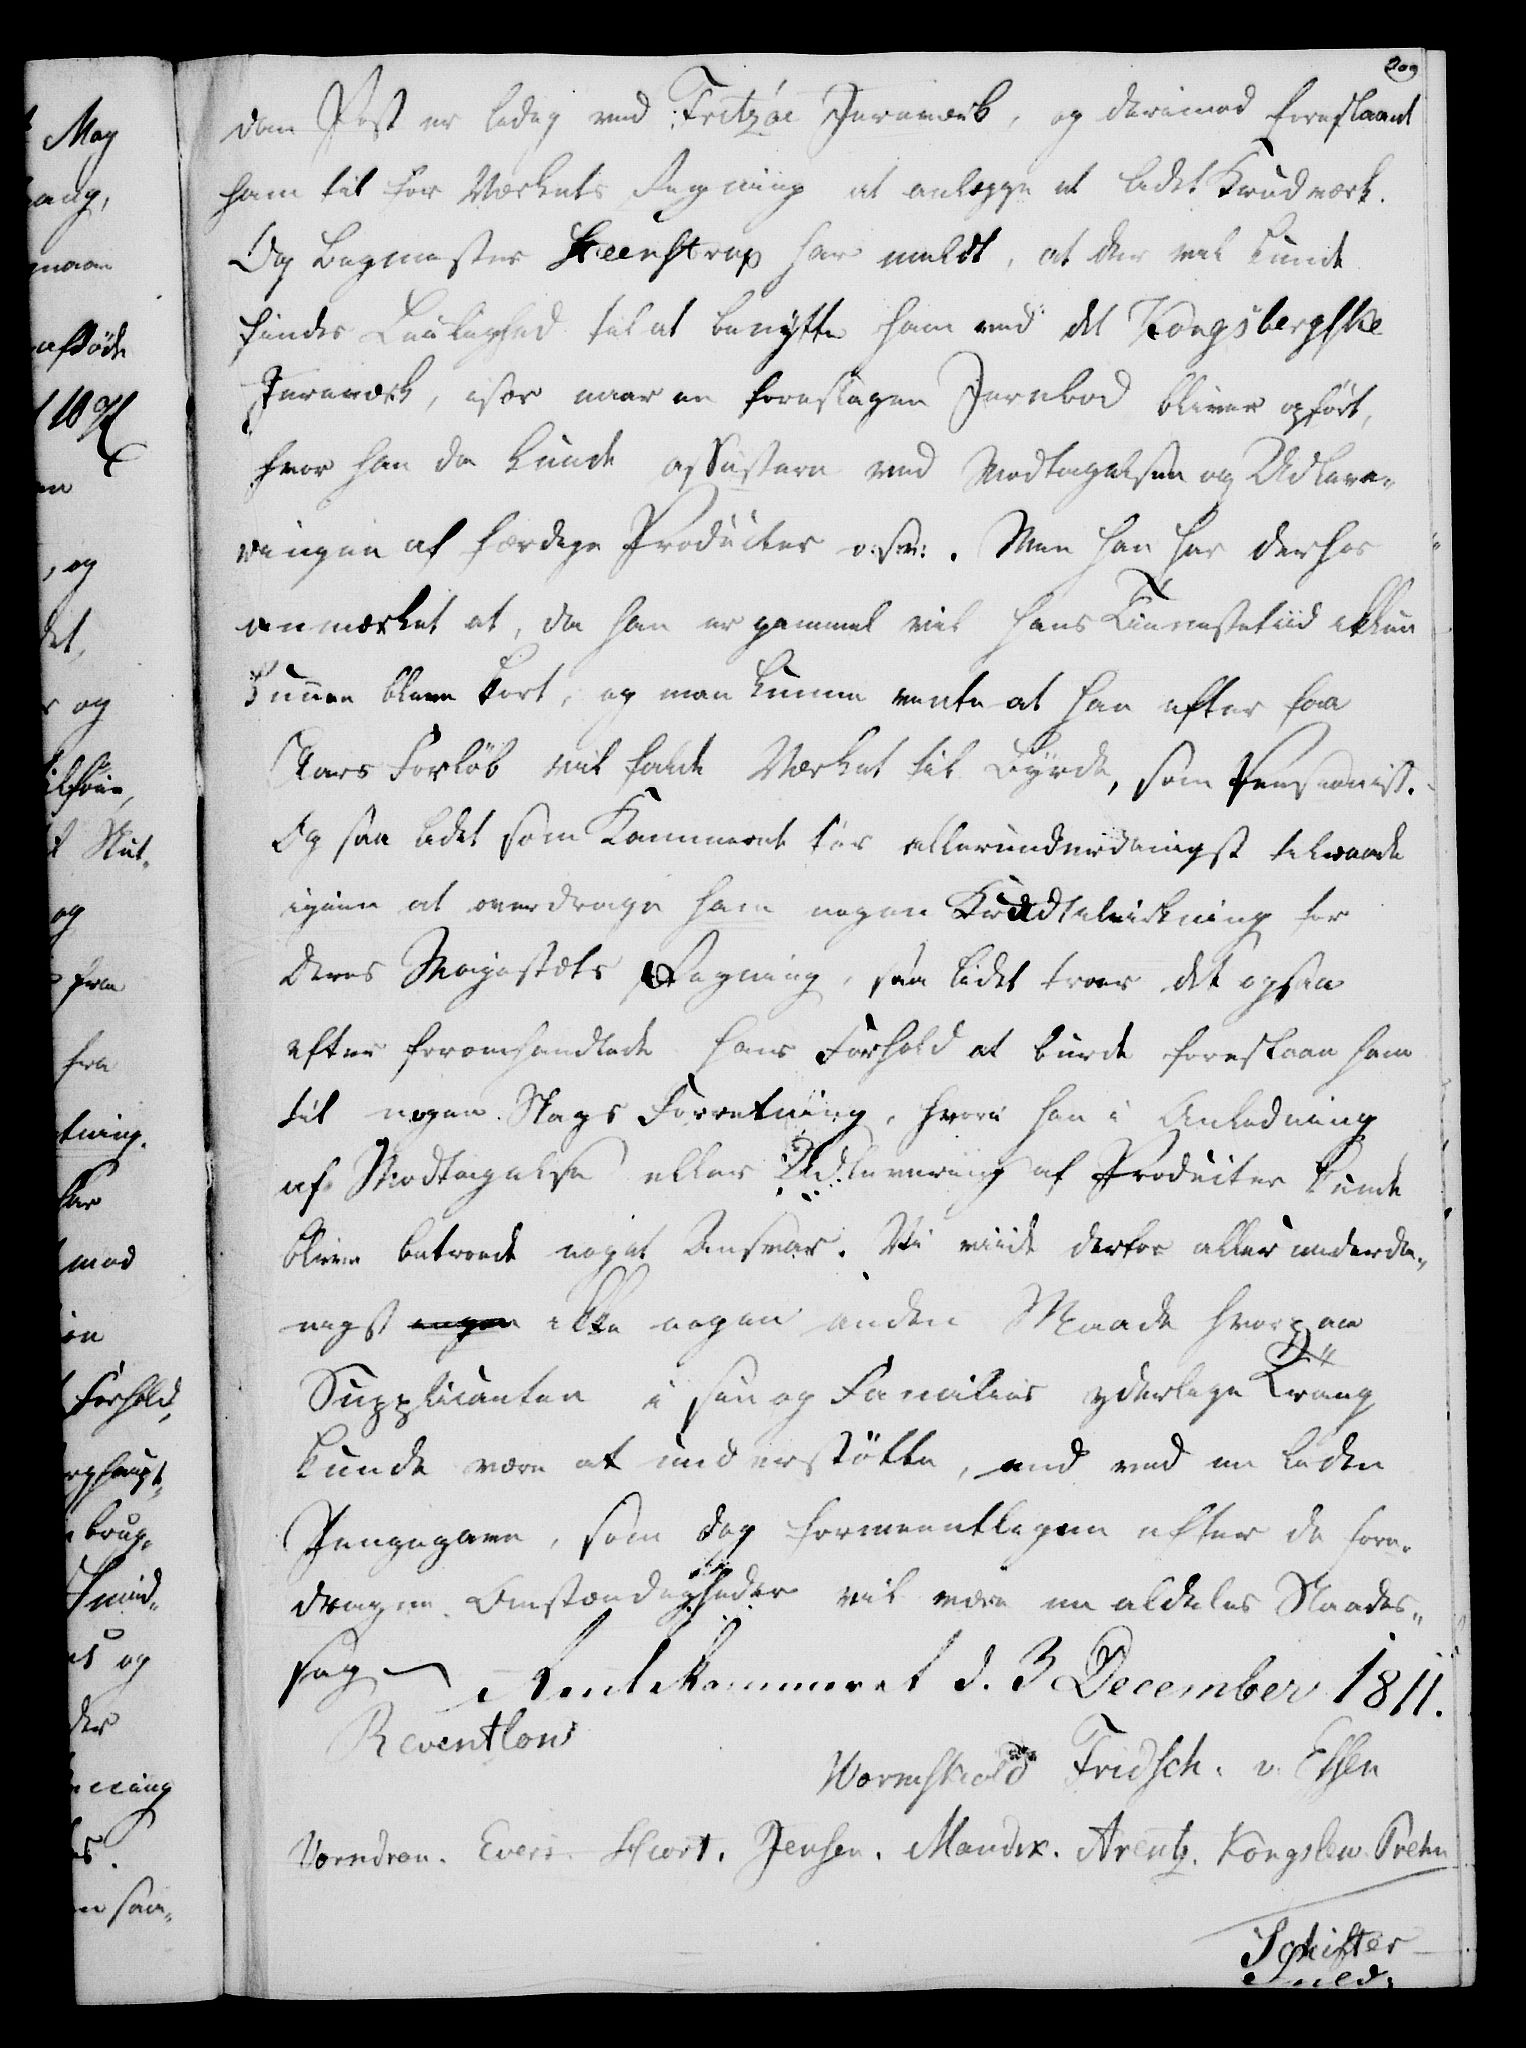 209
den Post er ledig ved Fritzøe Jernværk, og derimod foreslaaet
ham til for Værkets Regning at anlægge et lidet Krudværk.
Og Bergmester Steenstrup har meldt, at der vel kunde
findes Leilighed til at benytte ham ved det Kongsbergske
Jernværk, især naar en foreslagen Jernbod bliver opført,
hvor han da kunde assistere ved Modtagelsen og Udleve-
ringen af færdige Producter o: s: v:. Men han har derhos
anmærket at, da han er gammel vil hans Tienestetiid ikkun
kunne blive kort, og man kunne vente at han efter faa
Aars Forløb vil falde Værket til Byrde, som Pensionist.
Og saa lidet som Kammeret tør allerunderdanigst tilraade
igien at overdrage ham nogen Krudtilvirkning for
Deres Majestæts Regning, saa lidet troer det ogsaa
efter foromhandlede hans Forhold at burde foreslaae ham
til nogen Slags Forretning, hvori han i Anledning
af Modtagelse eller Udlevering af Producter kunde
blive betroede noget Ansvar. Vi viide derfor allerunderda-
nigst ikke nogen anden Maade hvorpaa
Supplicanten i sin og Families yderlige Trang
kunde være at understøtte, end ved en liden
Pengegave, som dog formeentligen efter de fore-
dragne Omstændigheder vil være en aldeles Naades-
sag Rentekammeret d. 3 December 1811.
Reventlow
Wormskiold Fridsch. v. Essen
Vorndran. Evers. Hiort. Jensen. Mandix. Arentz. Kongslew. Prehn
Schifter